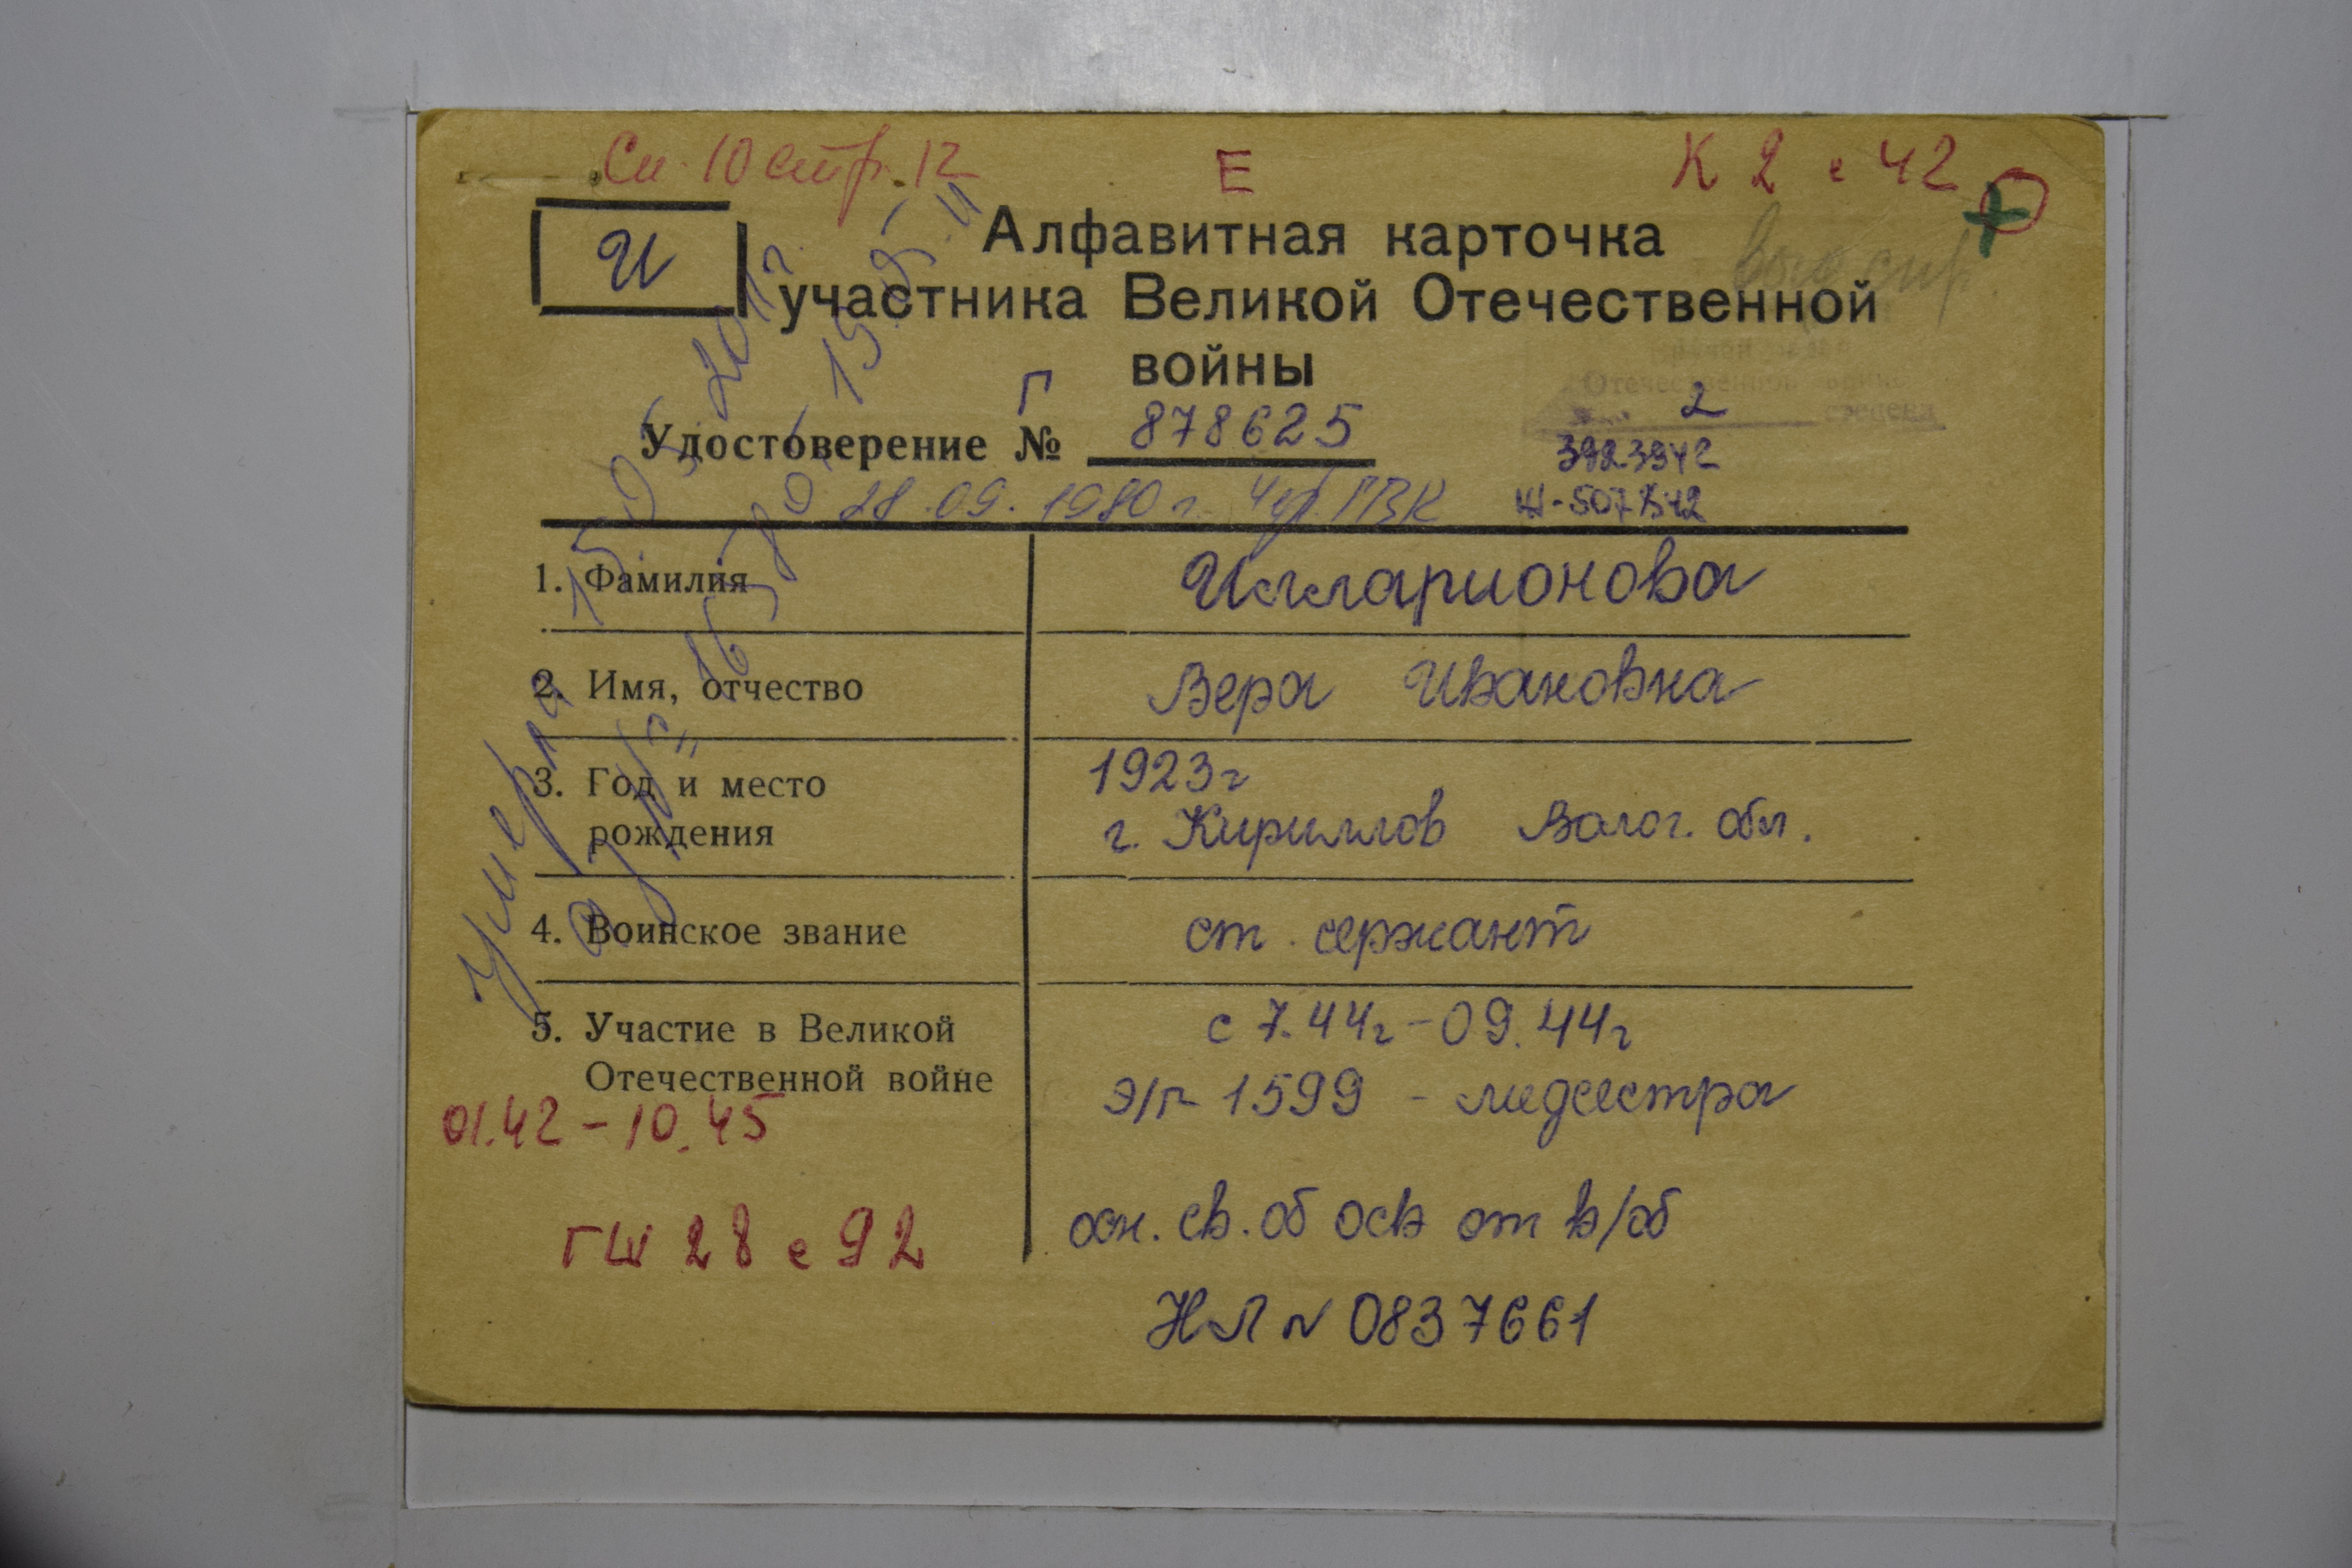 Сп. 10 стр. 12
Е
К 2 с 42
И
Алфавитная карточка
участника Великой Отечественной
войны
Удостоверение № Г 878625
2
3923942
28.09.1980 г. Чер. ГВК
1. Фамилия Илларионова
2. Имя, отчество Вера Ивановна
3. Год и место рождения 1923г
г. Кириллов Волог. обл.
4. Воинское звание ст. сержант
5. Участие в Великой Отечественной войне с 7.44г - 09.44г
э/г 1599 - медсестра
01.42 - 10.45
осн. св. об осв от в/об
ГШ 28 с 92
НЛ № 0837661
Умерла